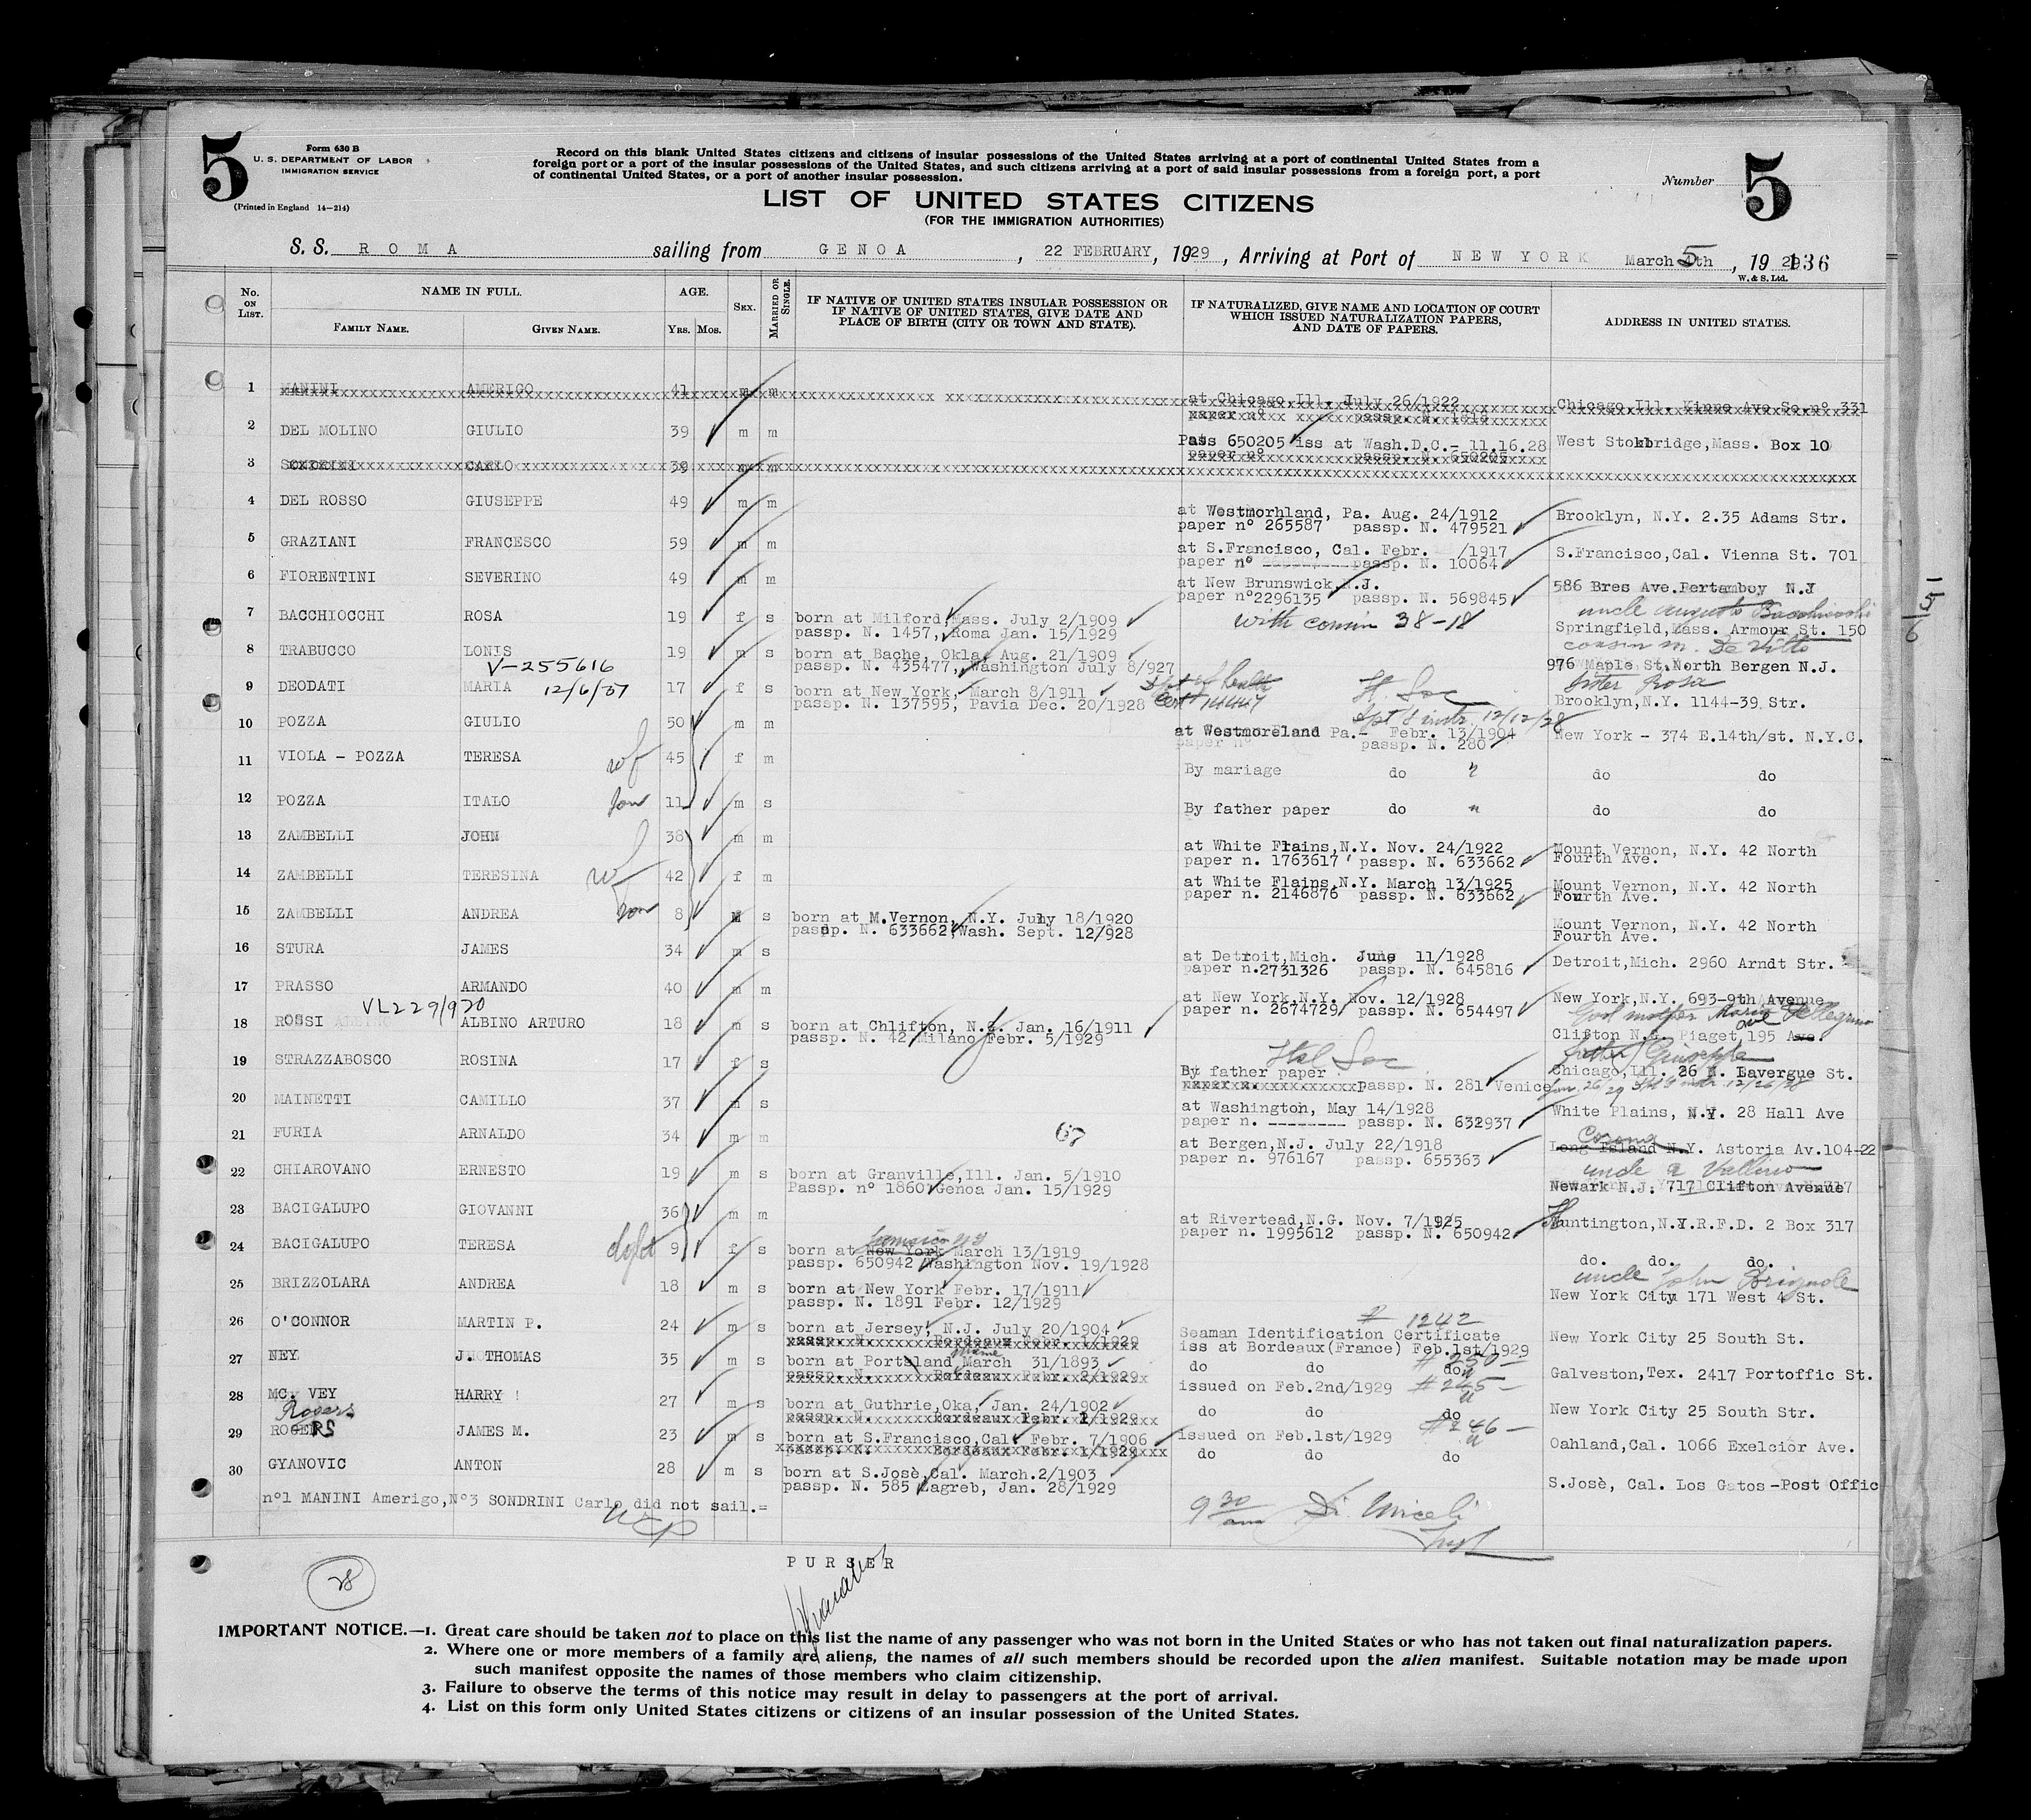 5
Form 630 B
U. S. DEPARTMENT OF LABOR
IMMIGRATION SERVICE
(Printed in England 14—214)
Record on this blank United States citizens and citizens of insular possessions of the United States arriving at a port of continental United States from a
foreign port or a port of the insular possessions of the United States, and such citizens arriving at a port of said insular possessions from a foreign port, a port
of continental United States, or a port of another insular possession.
Number 5
LIST OF UNITED STATES CITIZENS
(FOR THE IMMIGRATION AUTHORITIES)
S. S. ROMA sailing from GENOA, 22 FEBRUARY, 1929, Arriving at Port of NEW YORK March 5th, 1929 136
W. & S. Ltd.
No. ON LIST.
NAME IN FULL.
FAMILY NAME. GIVEN NAME.
AGE.
YRS. MOS.
SEX.
MARRIED OR SINGLE.
IF NATIVE OF UNITED STATES INSULAR POSSESSION OR
IF NATIVE OF UNITED STATES, GIVE DATE AND
PLACE OF BIRTH (CITY OR TOWN AND STATE).
IF NATURALIZED, GIVE NAME AND LOCATION OF COURT
WHICH ISSUED NATURALIZATION PAPERS,
AND DATE OF PAPERS.
ADDRESS IN UNITED STATES.
1 MANINI AMERIGO 41 m m
at Chicago, Ill. July 26/1922 Chicago Ill. Kinne Ave So.nº 331
paper nº passp. N. 1818
2 DEL MOLINO GIULIO 39 m m
Pass 650205 iss at Wash.D.C.- 11.16.28 West Stokbridge, Mass. Box 10
paper nº passp. N. 650205
3 SONDRINI CARLO 39 m m
4 DEL ROSSO GIUSEPPE 49 m m
at Westmorhland, Pa. Aug. 24/1912 Brooklyn, N.Y. 2.35 Adams Str.
paper nº 265587 passp. N. 479521
5 GRAZIANI FRANCESCO 59 m m
at S.Francisco, Cal. Febr. /1917 S.Francisco,Cal. Vienna St. 701
paper nº -------- passp. N. 10064
6 FIORENTINI SEVERINO 49 m m
at New Brunswick, N.J. 586 Bres Ave.Pertamboy N.J
paper nº2296135 passp. N. 569845
7 BACCHIOCCHI ROSA 19 f s
born at Milford, Mass. July 2/1909 with cousin 38-18 uncle Augusto Bacchiocchi
passp. N. 1457, Roma Jan. 15/1929 Springfield, Mass. Armour St. 150
8 TRABUCCO LONIS 19 m s
born at Bache, Okla, Aug. 21/1909 cousin m. De Vitto
passp. N. 435477, Washington July 8/927 976 Maple St.North Bergen N.J.
V-255616
12/6/37
9 DEODATI MARIA 17 f s
born at New York, March 8/1911 Dpt of health H. Soc sister Rosa
passp. N. 137595, Pavia Dec. 20/1928 Cert 14447 Brooklyn,N.Y. 1144-39 Str.
12/12/28
10 POZZA GIULIO 50 m m
at Westmoreland Pa.- Febr. 13/1904 New York - 374 E.14th/st. N.Y.C.
paper nº passp. N. 280
11 VIOLA - POZZA TERESA wf 45 f m
By mariage do " do do
12 POZZA ITALO son 11 m s
By father paper do " do do
13 ZAMBELLI JOHN 38 m m
at White Flains,N.Y. Nov. 24/1922 Mount Vernon, N.Y. 42 North
paper n. 1763617 passp. N. 633662 Fourth Ave.
14 ZAMBELLI TERESINA wf 42 f m
at White Flains,N.Y. March 13/1925 Mount Vernon, N.Y. 42 North
paper n. 2146876 passp. N. 633662 Fourth Ave.
15 ZAMBELLI ANDREA son 8 M s
born at M.Vernon, N.Y. July 18/1920 Mount Vernon, N.Y. 42 North
passp. N. 633662, Wash. Sept. 12/928 Fourth Ave.
16 STURA JAMES 34 m s
at Detroit,Mich. June 11/1928 Detroit,Mich. 2960 Arndt Str.
paper n.2731326 passp. N. 645816
17 PRASSO ARMANDO 40 m m
at New York,N.Y. Nov. 12/1928 New York,N.Y. 693-9th Avenue
paper n. 2674729 passp. N. 654497
VL229/920
18 ROSSI ALBINO ARTURO 18 m s
born at Chlifton, N.J. Jan. 16/1911 God mother Maria Pellegrino
passp. N. 42 Milano Febr. 5/1929 Clifton N.J. Piaget,195 Ave.
19 STRAZZABOSCO ROSINA 17 f s
Hol Soc father Giuseppe
By father paper Chicago,Ill. 26 N. Lavergue St.
Passp. N. 281 Venice
12/26/28
20 MAINETTI CAMILLO 37 m s
at Washington, May 14/1928 White Plains, N.Y. 28 Hall Ave
paper n. -------- passp. N. 632937
21 FURIA ARNALDO 34 m m
67
at Bergen,N.J. July 22/1918 Corona Long Island N.Y. Astoria Av.104-22
paper n. 976167 passp. 655363
22 CHIAROVANO ERNESTO 19 m s
born at Granville,Ill. Jan. 5/1910 uncle a Vallino
Passp. nº 1860 Genoa Jan. 15/1929 Newark N.J. 717 Clifton Avenue
23 BACIGALUPO GIOVANNI 36 m m
at Rivertead,N.G. Nov. 7/1925 Huntington,N.Y.R.F.D. 2 Box 317
paper n. 1995612 passp. N. 650942
24 BACIGALUPO TERESA 9 f s
Jamaica NY
born at New York March 13/1919 do. do. do.
passp. 650942 Washington Nov. 19/1928
25 BRIZZOLARA ANDREA 18 m s
born at New York Febr. 17/1911 uncle John Brignole
passp. N. 1891 Febr. 12/1929 New York City 171 West 4 St.
26 O'CONNOR MARTIN P. 24 m s
# 1242
born at Jersey, N.J. July 20/1904 Seaman Identification Certificate New York City 25 South St.
passp. N. Bordeaux Febr. 1/1929 iss at Bordeaux(France) Feb.1st/1929
27 NEY J. THOMAS 35 m s
Maine
born at Portsland March 31/1893 do do do # 250 Galveston,Tex. 2417 Portoffic St.
passp. N. Bordeaux Febr. 2/1929 issued on Feb.2nd/1929 # 245
28 MC. VEY HARRY 27 m s
born at Guthrie,Oka, Jan. 24/1902 do do do New York City 25 South Str.
passp. N. Bordeaux Febr. 1/1929 issued on Feb.1st/1929 # 246
Rogers
29 ROGERS JAMES M. 23 m s
born at S.Francisco,Cal. Febr. 7/1906 do do do Oahland,Cal. 1066 Exelcior Ave.
passp. N. Bordeaux Febr. 1/1929
30 GYANOVIC ANTON 28 m s
born at S.Josè,Cal. March.2/1903 S.Josè, Cal. Los Gatos-Post Offic
passp. N. 585 Zagreb, Jan. 28/1929
nº1 MANINI Amerigo,Nº3 SONDRINI Carlo did not sail.=
9 30 am
PURSER
28
IMPORTANT NOTICE.—1. Great care should be taken not to place on this list the name of any passenger who was not born in the United States or who has not taken out final naturalization papers.
2. Where one or more members of a family are aliens, the names of all such members should be recorded upon the alien manifest. Suitable notation may be made upon
such manifest opposite the names of those members who claim citizenship.
3. Failure to observe the terms of this notice may result in delay to passengers at the port of arrival.
4. List on this form only United States citizens or citizens of an insular possession of the United States.